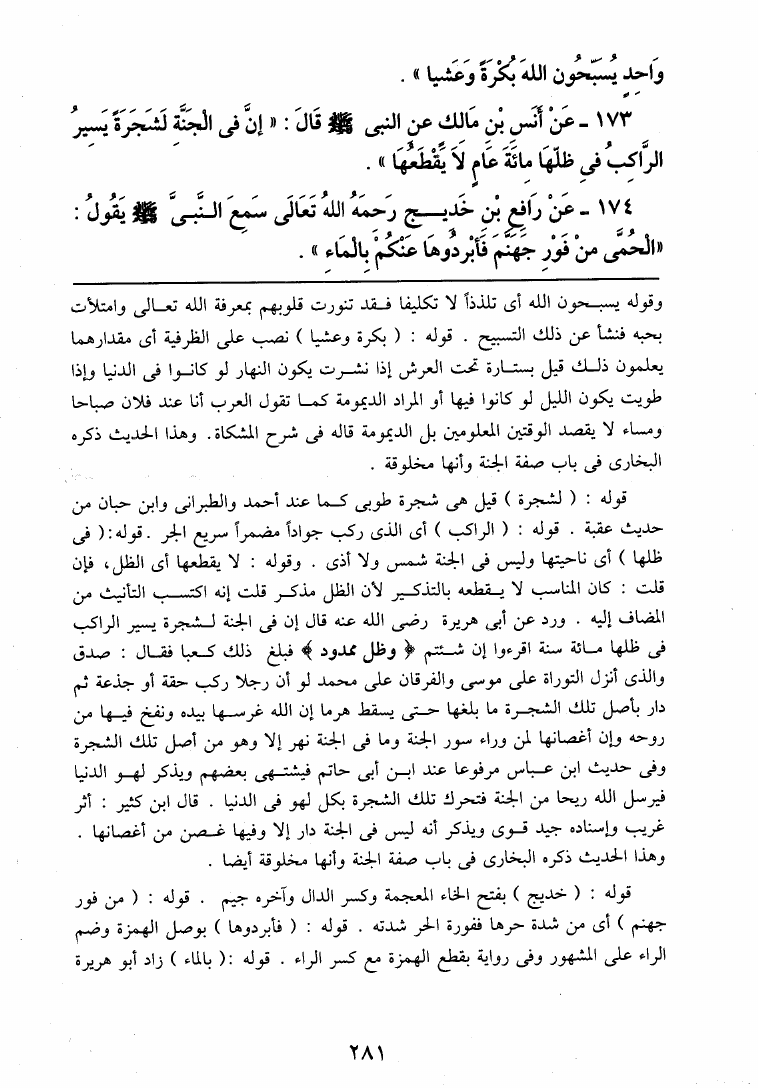 وَاحِدٍ يُسَبِّحُون اللهَ بُكْرَةً وَعَشيا » .
١٧٣ ـ عَنْ أَنَسِ بْنِ مَالك عن النبى ﷺ قَالَ : « إنَّ فى الْجنَّةِ لَشَجَرَةً يَسيرُ
الرَّاكِبُ فى ظلِّهَا مائَةَ عَامٍ لاَ يَقْطَعُهَا » .
١٧٤ ـ عَنْ رَافِعِ بْنِ خَديـــج رَحمَهُ اللهُ تَعَالَى سَمعَ الـنَّبىَّ ﷺ يَقُولُ :
«الْحُمَّى منْ فَوْرِ جَهَنَّمَ فَأبْردُوهَا عَنْكُمْ بِالْمَاءِ » .
وقوله يسبـحون الله أى تلذذاً لا تكليفا فـقد تنورت قلوبهم بمعرفة الله تعـالى وامتلأت
بحبه فنشأ عن ذلك التسبيح . قوله : ( بكرة وعشيا ) نصب على الظرفية أى مقدارهما
يعلمون ذلـك قيل بستـارة تحت العرش إذا نشـرت يكون النهار لو كانـوا فى الدنيا وإذا
طويت يكون الليل لو كانوا فيها أو المراد الديمومة كمـا تقول العرب أنا عند فلان صباحا
ومساء لا يقصد الوقتين المعلومين بل الديمومة قاله فى شرح المشكاة. وهذا الحديث ذكره
البخارى فى باب صفة الجنة وأنها مخلوقة .
قوله : ( لشجرة ) قيل هى شجرة طوبى كـما عند أحمد والطبرانى وابن حبان من
حديث عقبة . قوله : ( الراكب ) أى الذى ركب جواداً مضمراً سريع الجر .قوله:( فى
ظلها ) أى ناحيتها وليس فى الجنة شمس ولا أذى . وقوله : لا يقطعها أى الظل، فإن
قلت : كان المناسب لا يـقطعه بالتذكـير لأن الظل مذكـر قلت إنه اكتسـب التأنيث من
المضاف إليه . ورد عن أبى هريرة رضى الله عنه قال إن فى الجنة لـشجرة يسير الراكب
فى ظلها مـائة سنة اقرءوا إن شـئتم ﴿ وظل ممدود ﴾ فبلغ ذلك كـعبا فقـال : صدق
والذى أنزل التوراة على موسى والفرقان على محمد لو أن رجلا ركب حقة أو جذعة ثم
دار بأصل تلك الشجـرة ما بلغها حتـى يسقط هرما إن الله غرسـها بيده ونفخ فيـها من
روحه وإن أغصانها لمن وراء سور الجنة وما فى الجنة نهر إلا وهو من أصل تلك الشجرة
وفى حديث ابن عـباس مرفوعا عند ابـن أبى حاتم فيشتـهى بعضهم ويذكر لهـو الدنيا
فيرسل الله ريحا من الجنة فتحرك تلك الشجرة بكل لهو فى الدنيا . قال ابن كثير : أثر
غريب وإسناده جيد قـوى ويذكر أنه ليس فى الجنة دار إلا وفيها غـصن من أغصانها .
وهذا الحديث ذكره البخارى فى باب صفة الجنة وأنها مخلوقة أيضا .
قوله : ( خديج ) بفتح الخاء المعجمة وكسر الدال وآخره جيم . قوله : ( من فور
جهنم ) أى من شدة حرها ففورة الحر شدته . قوله : ( فأبردوها ) بوصل الهمزة وضم
الراء على المشهور وفى رواية بقطع الهمزة مع كسر الراء . قوله :( بالماء ) زاد أبو هريرة
٢٨١